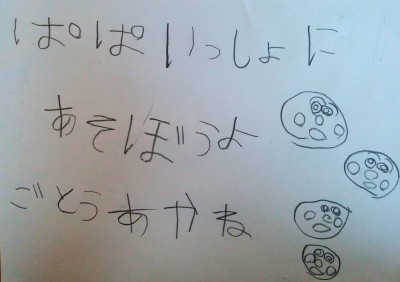 ぱぱいっしょに
あそぼうよ
ごとうあかね